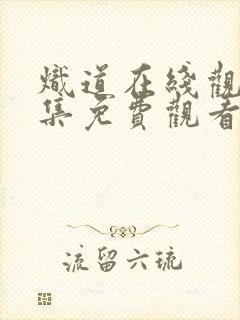 熾道在綫觀
集免費觀看
流留六琉